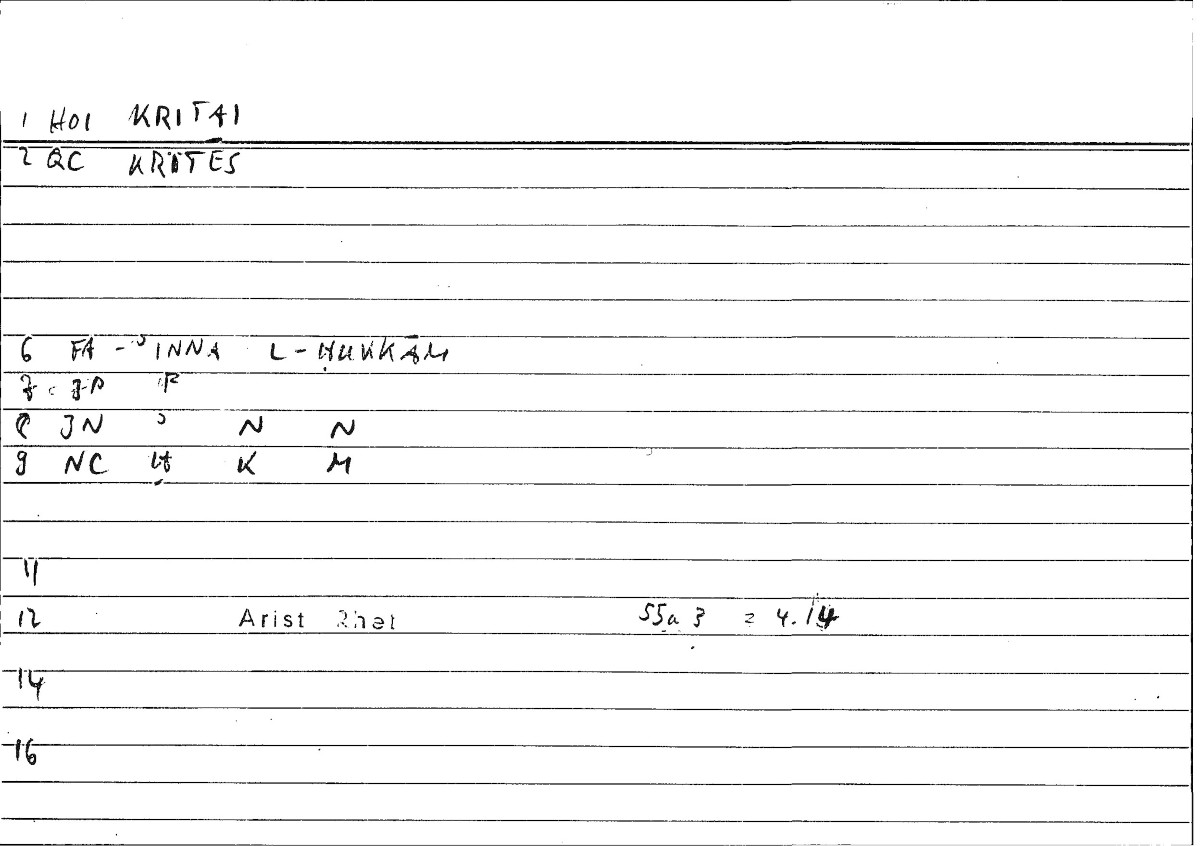 1 HOI KRITAI
2 QC KRITES
6 FA - ʾINNA L - ḤUKKĀM
7 JP P
8 JN ʾ N N
9 NC Ḥ K M
11
12 Arist Rhet 55a 3 = 4.14
14
16